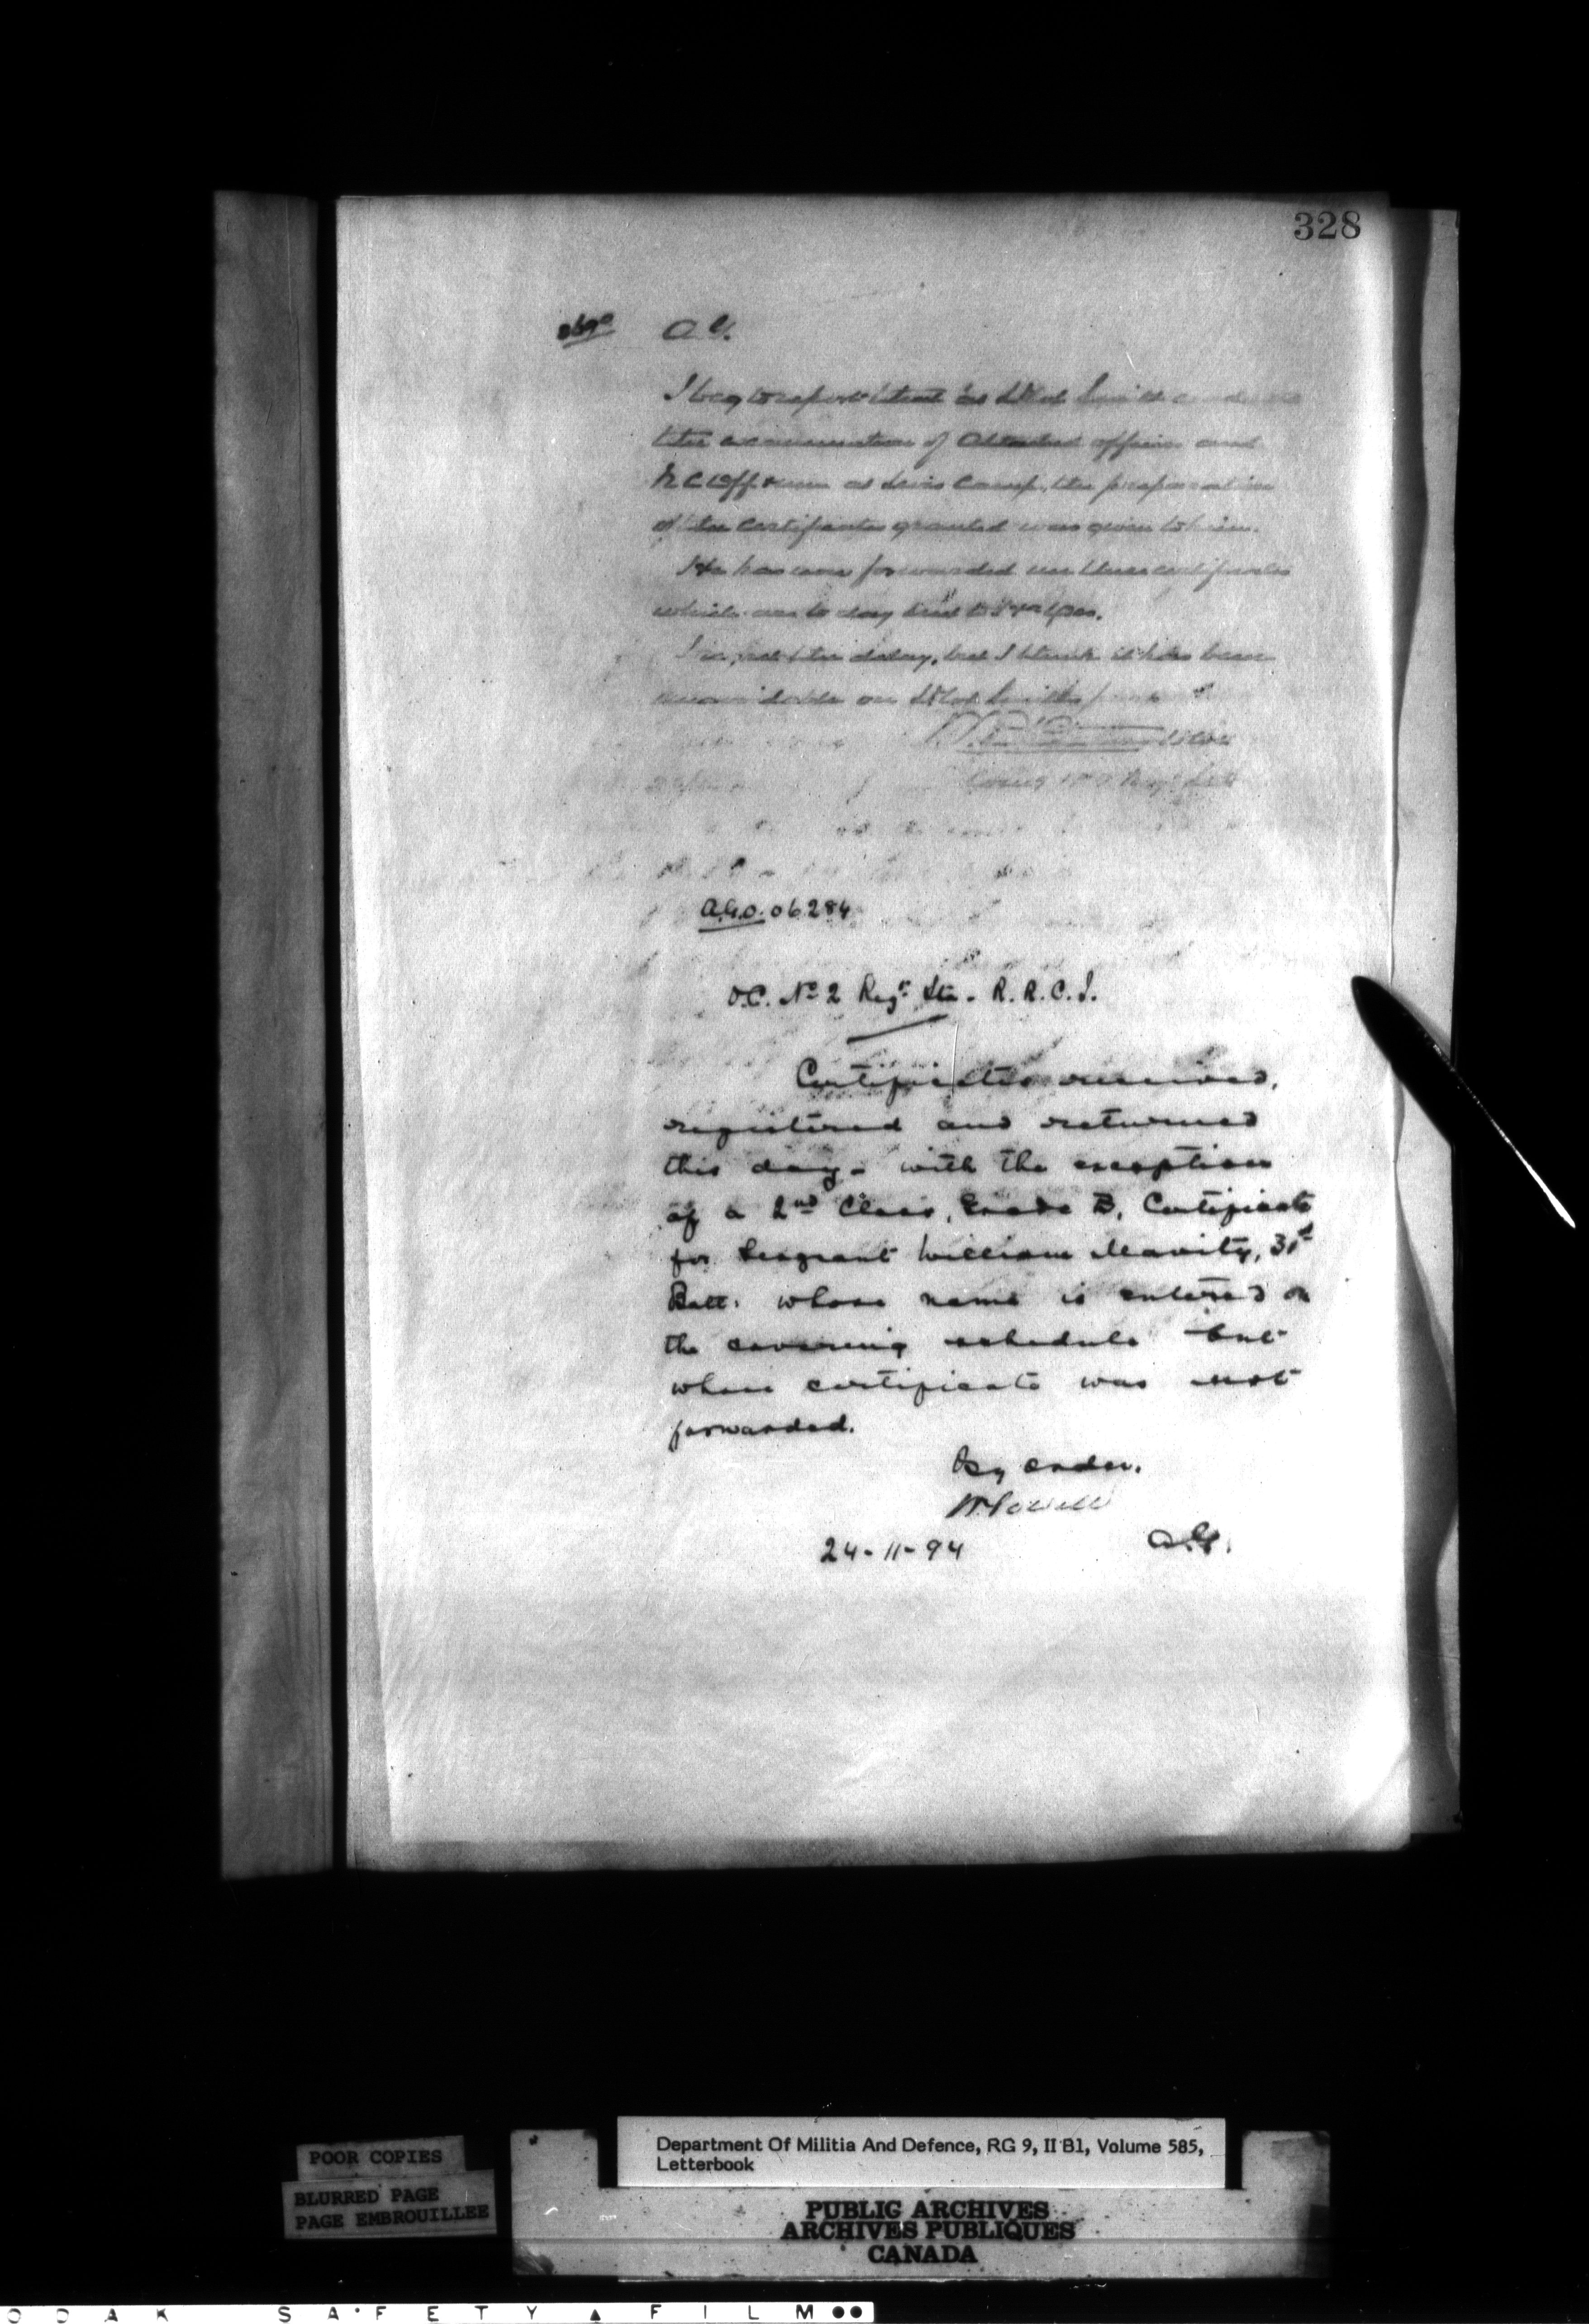 328
A.G.
I beg to report that as Lt Col Smith
the examination of Attached officers and
N.C. Off. & men at Levis Camp, the preparation
of the certificates granted was given to him.
He has now forwarded me these certificates
which are to day sent to you.
I regret the delay, but I think it has been
unavoidable on Lt Col Smith's part
A.G.O. 06284
O.C. No 2 Regt. Dn. R.R.C.I.
Certificates received,
registered and returned
this day - with the exception
of a 2nd Class, Grade B, Certificate
for Sergeant William Mavity, 31st
Batt: whose name is entered on
the covering schedule but
whose certificate was not
forwarded.
By order.
W Powell
24-11-94 A.G.
POOR COPIES
BLURRED PAGE
PAGE EMBROUILLEE
Department Of Militia And Defence, RG 9, II B1, Volume 585,
Letterbook
PUBLIC ARCHIVES
ARCHIVES PUBLIQUES
CANADA
O D A K S A F E T Y ▲ F I L M ●●